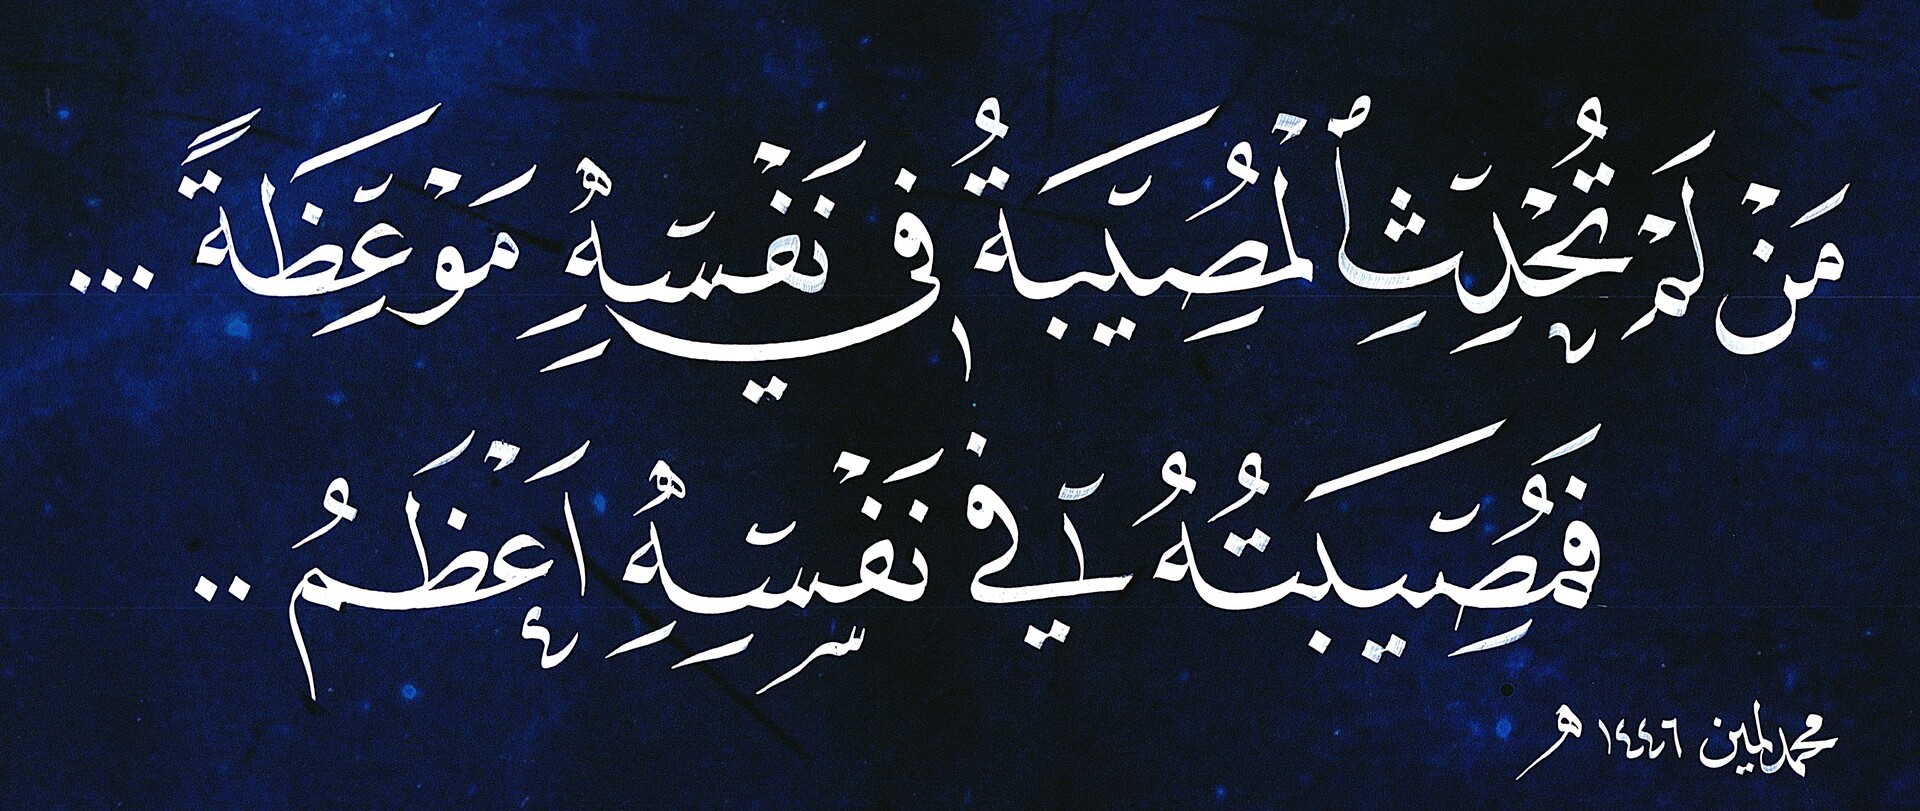 مَنْ لَمْ تُحْدِثِ ٱلْمُصِيبَةُ فِي نَفْسِهِ مَوْعِظَةً ...
فَمُصِيبَتُهُ فِي نَفْسِهِ اَعْظَمُ ..
محمد لمين ١٤٤٦ هـ